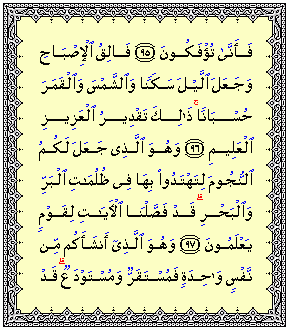 فَأَنَّىٰ تُؤْفَكُونَ ﴿٩٥﴾ فَالِقُ الْإِصْبَاحِ
وَجَعَلَ الَّيْلَ سَكَنًا وَالشَّمْسَ وَالْقَمَرَ
حُسْبَانًا ۚ ذَٰلِكَ تَقْدِيرُ الْعَزِيزِ
الْعَلِيمِ ﴿٩٦﴾ وَهُوَ الَّذِى جَعَلَ لَكُمُ
النُّجُومَ لِتَهْتَدُوا۟ بِهَا فِى ظُلُمَٰتِ الْبَرِّ
وَالْبَحْرِ ۗ قَدْ فَصَّلْنَا الْآيَٰتِ لِقَوْمٍ
يَعْلَمُونَ ﴿٩٧﴾ وَهُوَ الَّذِىٓ أَنشَأَكُم مِّن
نَّفْسٍ وَٰحِدَةٍ فَمُسْتَقَرٌّ وَمُسْتَوْدَعٌ ۗ قَدْ